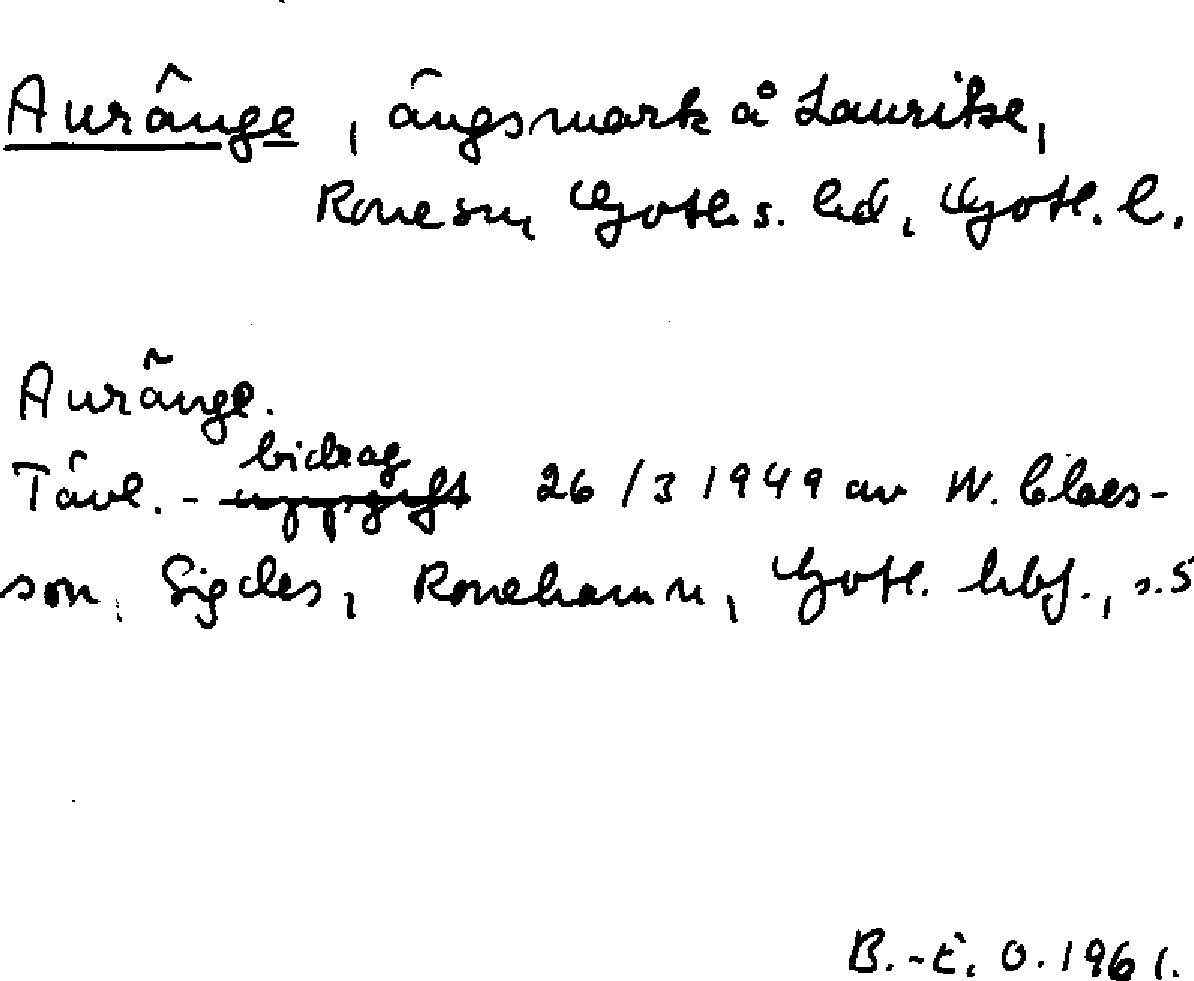 Auränge, ängsmark å Lauritse,
Rone sn, Gotl. s. hd, Gotl. l.
Auränge.
bidrag
Tävl.- uppgift 26/3 1949 av W. Claes-
son, Sigdes, Ronehamn, Gotl. hbf., s.5
B.-E. O. 1961.